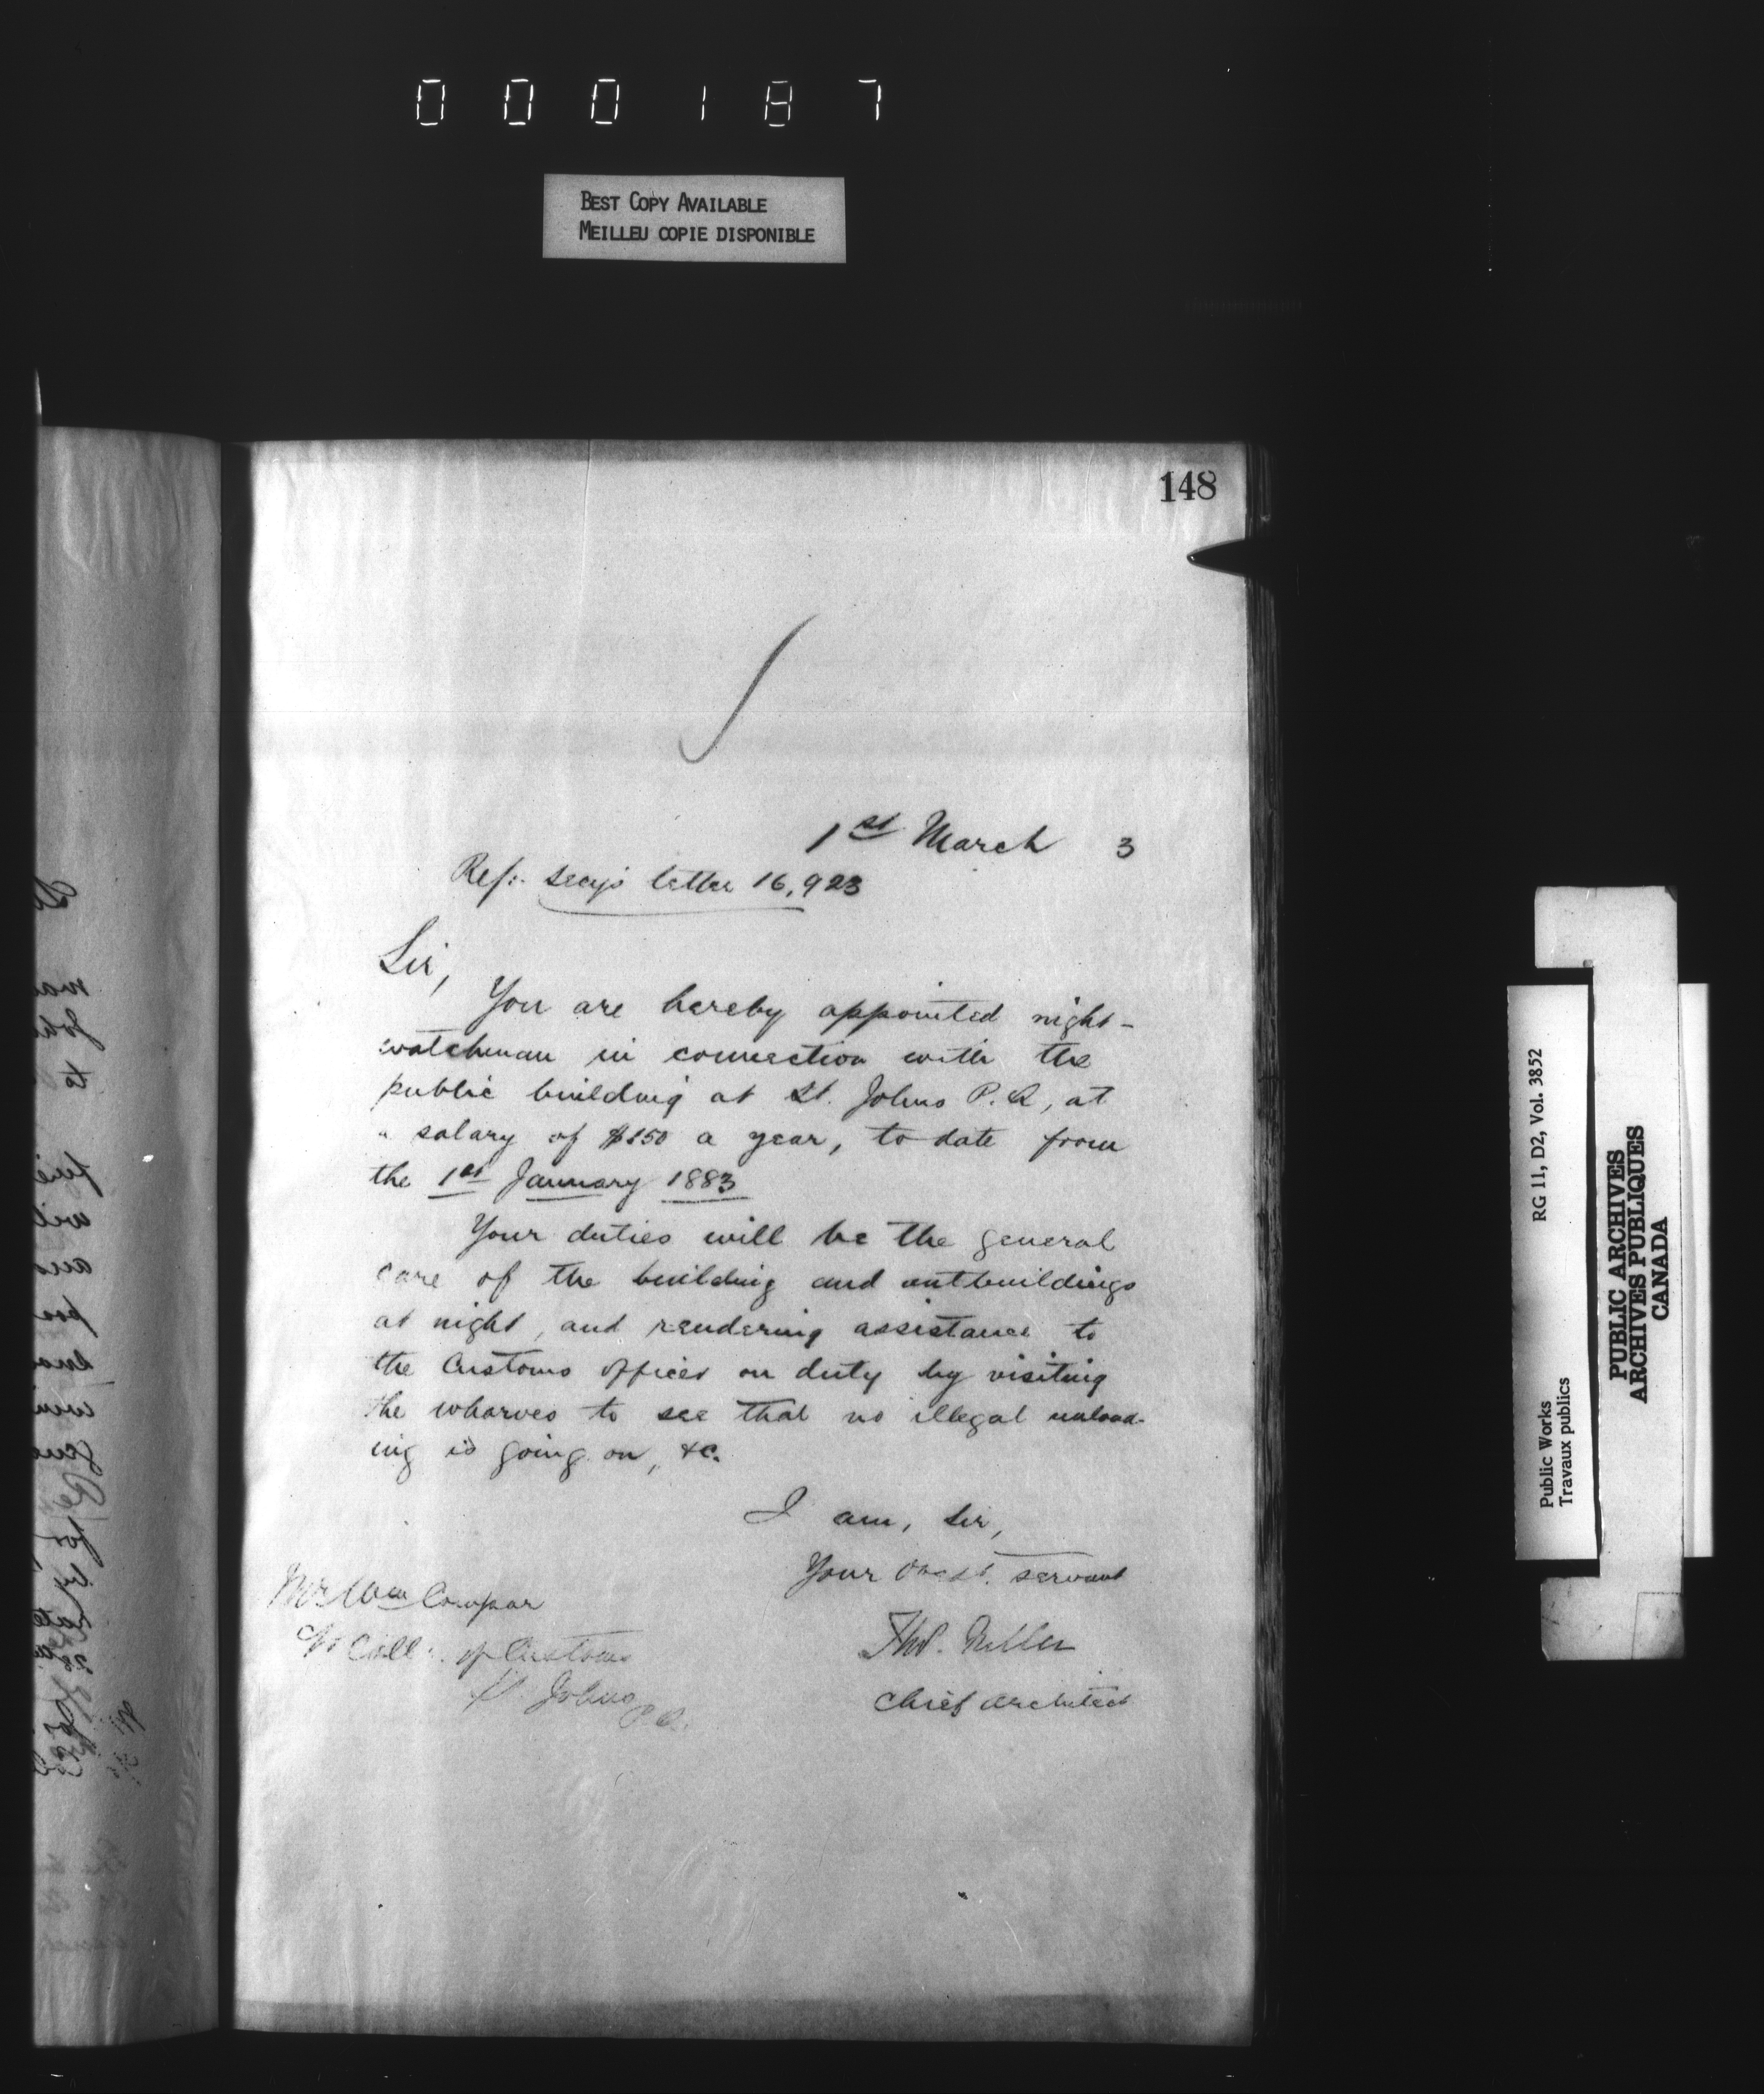 000187
BEST COPY AVAILABLE
MEILLEU COPIE DISPONIBLE
148
1st March 3
Ref:- Secy's letter 16,923
Sir,
You are hereby appointed night-
watchman in connection with the
public building at St. Johns P.Q, at
a salary of $250 a year, to date from
the 1st January 1883
Your duties will be the general
care of the building and outbuildings
at night, and rendering assistance to
the Customs officer on duty by visiting
the wharves to see that no illegal unload-
ing is going on, &c.
I am, Sir,
Your Obedt. servant
Mr Wm
Thos.
of Customs
Chief Architect
St. Johns
P.Q.
RG 11, D2, Vol. 3852
Public Works
Travaux publics
PUBLIC ARCHIVES
ARCHIVES PUBLIQUES
CANADA